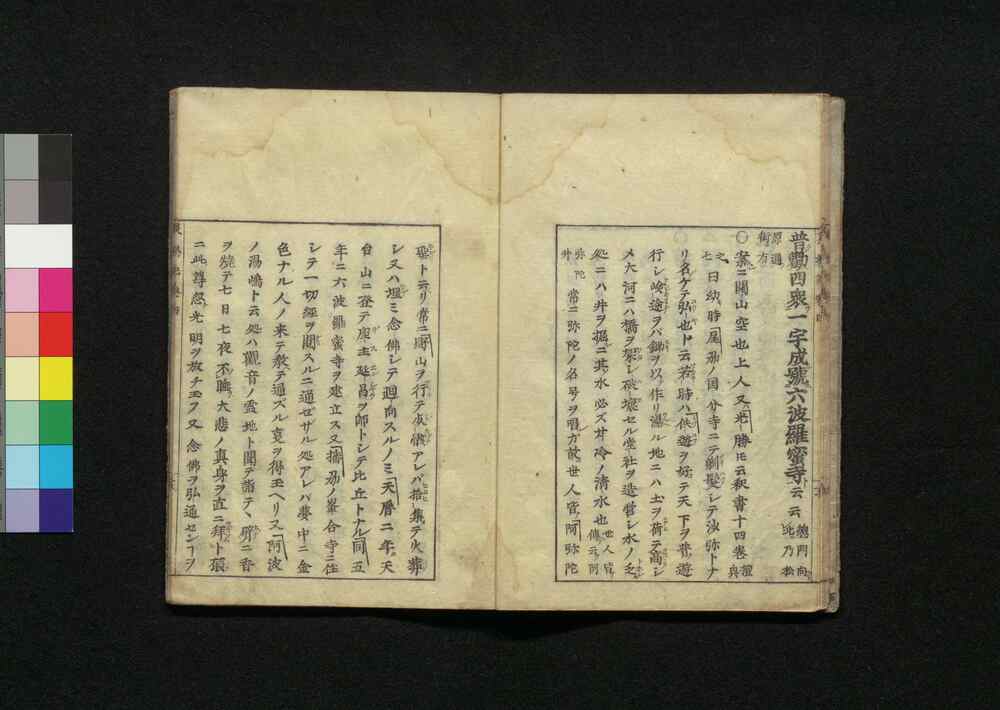 普勸四衆一字成號六波羅蜜寺云云 總門向此乃松
原通街方
○案ニ開山空也上人又光勝ト云釈書十四巻檀興
之七日幼時尾刕ノ国分寺ニテ剃髪シテ沙弥トナ
リ名ケテ弘也ト云若時ハ佚遊ヲ好テ天下ヲ普遊
行シ嶮途ヲバ鋤ヲ以作リ濕ル地ニハ土ヲ荷テ高シ
メ大河ニハ橋ヲ架シ破壊セル堂社ヲ造営シ水ノ乏
処ニハ井ヲ掘ニ其水必ズ甘冷ノ清水也 世人皆傳云阿
弥陀井 常ニ弥陀ノ名号ヲ唱力故世人皆阿弥陀
聖ト云リ常ニ 山ヲ行テ 骸アレバ拾集テ火葬
シ又ハ埋ミ念佛シテ廻向スルノミ天暦二年天
台山ニ登テ座主延昌ヲ師トシテ比丘トナル同五
年ニ六波羅蜜寺ヲ建立ス又播刕ノ峯合寺ニ住
シテ一切経ヲ閲スルニ通ゼザル処アレバ夢中ニ金
色ナル人ノ来テ教テ通ズル叓ヲ得玉ヘリ又阿波
ノ湯嶋ト云処ハ觀音ノ霊地ト聞テ詣デ、臂ニ香
ヲ焼テ七日七夜不睡大悲ノ真身ヲ直ニ拜ト
ニ此尊忽光明ヲ放チ玉フ又念佛ヲ弘通センヿヲ